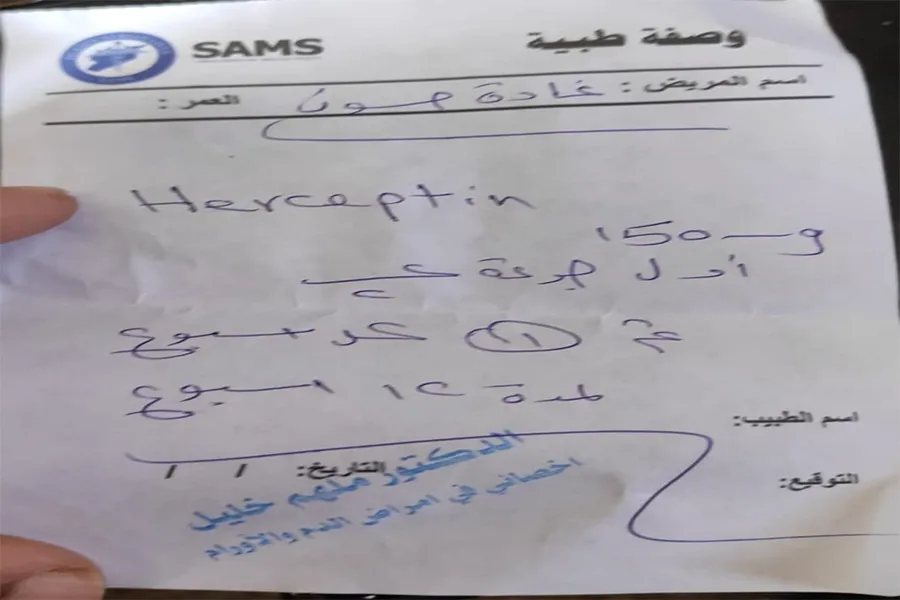 SAMS
وصفة طبية
اسم المريض: غادة العمر:
Herceptin
150
أول جرعة
ثم كل اسبوع
لمدة ١٢ اسبوع
اسم الطبيب:
التاريخ: / /
التوقيع:
الدكتور ملهم خليل
اخصائي في امراض الدم والأورام